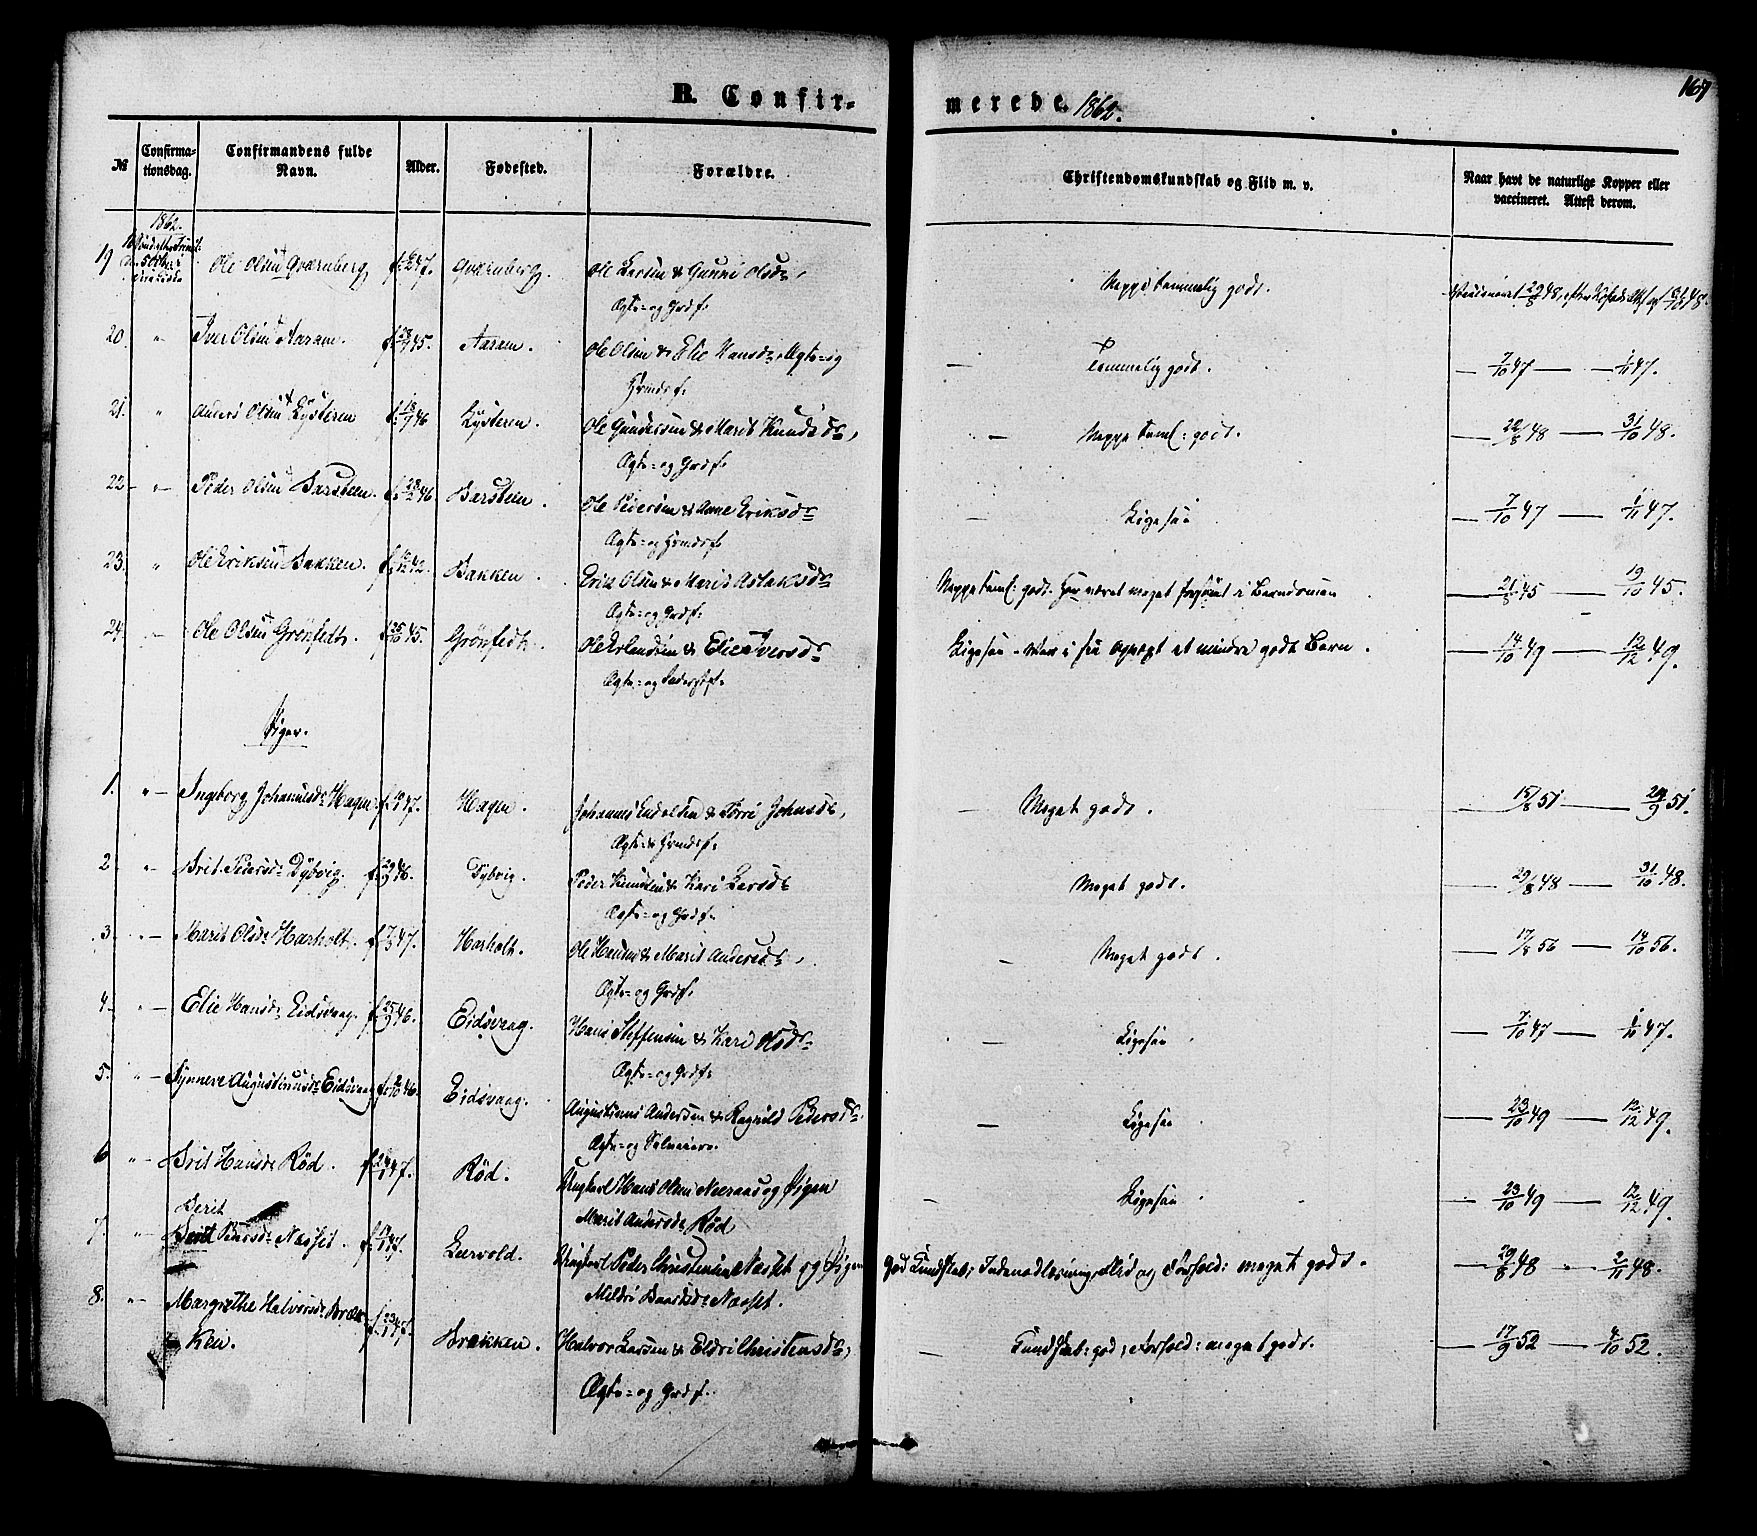 B. Confirmerede. 1862.
167
№
Confirmationsdag.
Confirmandens fulde Navn.
Alder.
Fødested.
Forældre.
Christendomskundskab og Flid m. v.
Naar havt de naturlige Kopper eller vaccineret. Attest derom.
1862.
19 Ole Olsen Qværnberg Qværnberg. Ole Larsen & Gunni Olsdr,
Ægte- og Grdf. Neppe temmelig godt.
20. " Iver Olsen Aaram. f. 28/9 45. Aaram. Ole Olsen & Elie Hansdr, Ægte- og
Hrmdsf. — Temmelig godt. — 7/10 47 — 1/11 47.
21. " Anders Olsen Lysteren f. 18/9 46 Lysteren. Ole Gundersen & Marit Knudsdr,
Ægte- og Grdf. — Neppe teml: godt. — 22/8 48 — 31/10 48.
22 " Peder Olsen Barsteen. f. 28/2 46. Barsteen. Ole Pedersen & Anne Eriksdr
Ægte- og Hrmdsf. — Ligesaa — 7/10 47 — 1/11 47.
23. " Ole Eriksen Bakken. 42. Bakken. Erik Olsen & Marit Aslaksdr
Ægte- og Grdf. Neppe teml: godt. Har været meget forsømt i Barndommen — 21/8 45 — 19/10 45.
24. Ole Olsen Grønfedt. f. 25/10 45. Grønfedt. Ole Erlandsen & Elie Iversdr
Ægte- og Ligesaa - Var i sin Opvext et mindre godt Barn. — 14/10 49 — 12/12 49.
Piger.
1. " Ingeborg Johannesdr Hagen 47. Hagen. Johannes & Johnsdr,
Ægte & Hrmdsf. — Meget godt. — 15/8 51 — 51.
2. " Brit Pedersdr Dybvig. f. 29/9 46. Dybvig. Peder Knudsen & Kari Larsdr
Ægte- og Grdf. Meget godt. — 29/8 48 — 31/10 48.
3. " Marit Olsdr Harholt. f. 7/3 47. Harholt. Ole Hansen & Marit Andersdr,
Ægte- og Grdf. — Meget godt. — 17/8 56 — 14/10 56.
4. " Elie Hansdr Eidsvaag. f. 25/9 46. Eidsvaag. Hans Steffensen & Kari Olsdr
Ægte- og Grdf. — Ligesaa — 7/10 47 — 1/11 47.
5. " Synnøve Augustinusdr Eidsvaag 46. Eidsvaag. Augustinus Andersen & Ragnild Pedersdr.
Ægte- og — Ligesaa — 23/10 49 — 12/12 49.
6 " Brit Hansdr Rød. 47. Rød. Ungkarl Hans Olsen Neeraas og Pigen
Marit Andersdr Rød — Ligesaa — 23/10 49 — 12/12 49.
Berit
7. " Berit Pedersdr Næsset. 47. Leervold. Ungkarl Peder Christensen Næsset og Pigen
Mildri Baardsdr Næsset. God Kundskab; Indenadlæsning, Flid og Forhold: meget godt. — 29/8 48 — 2/11 48.
8. " Margrethe Halvorsdr Bræk-
ken. 47. Brækken. Halvor Larsen & Eldri Christensdr,
Ægte- og Grdf. — Kundskab: god, Forhold: meget godt. — 17/9 52 — 4/10 52.